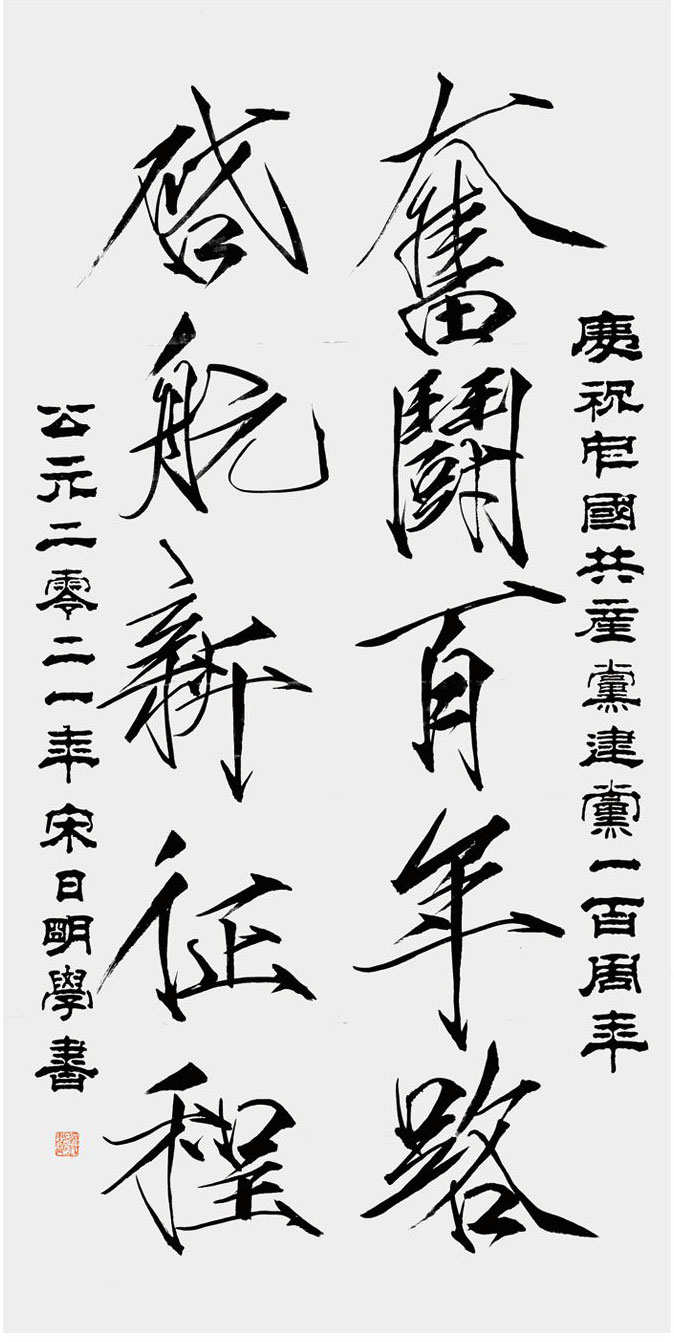 庆祝中國共産黨建黨一百周年
奮鬪百年路
啓航新征程
公元二零二一年宋日明學書